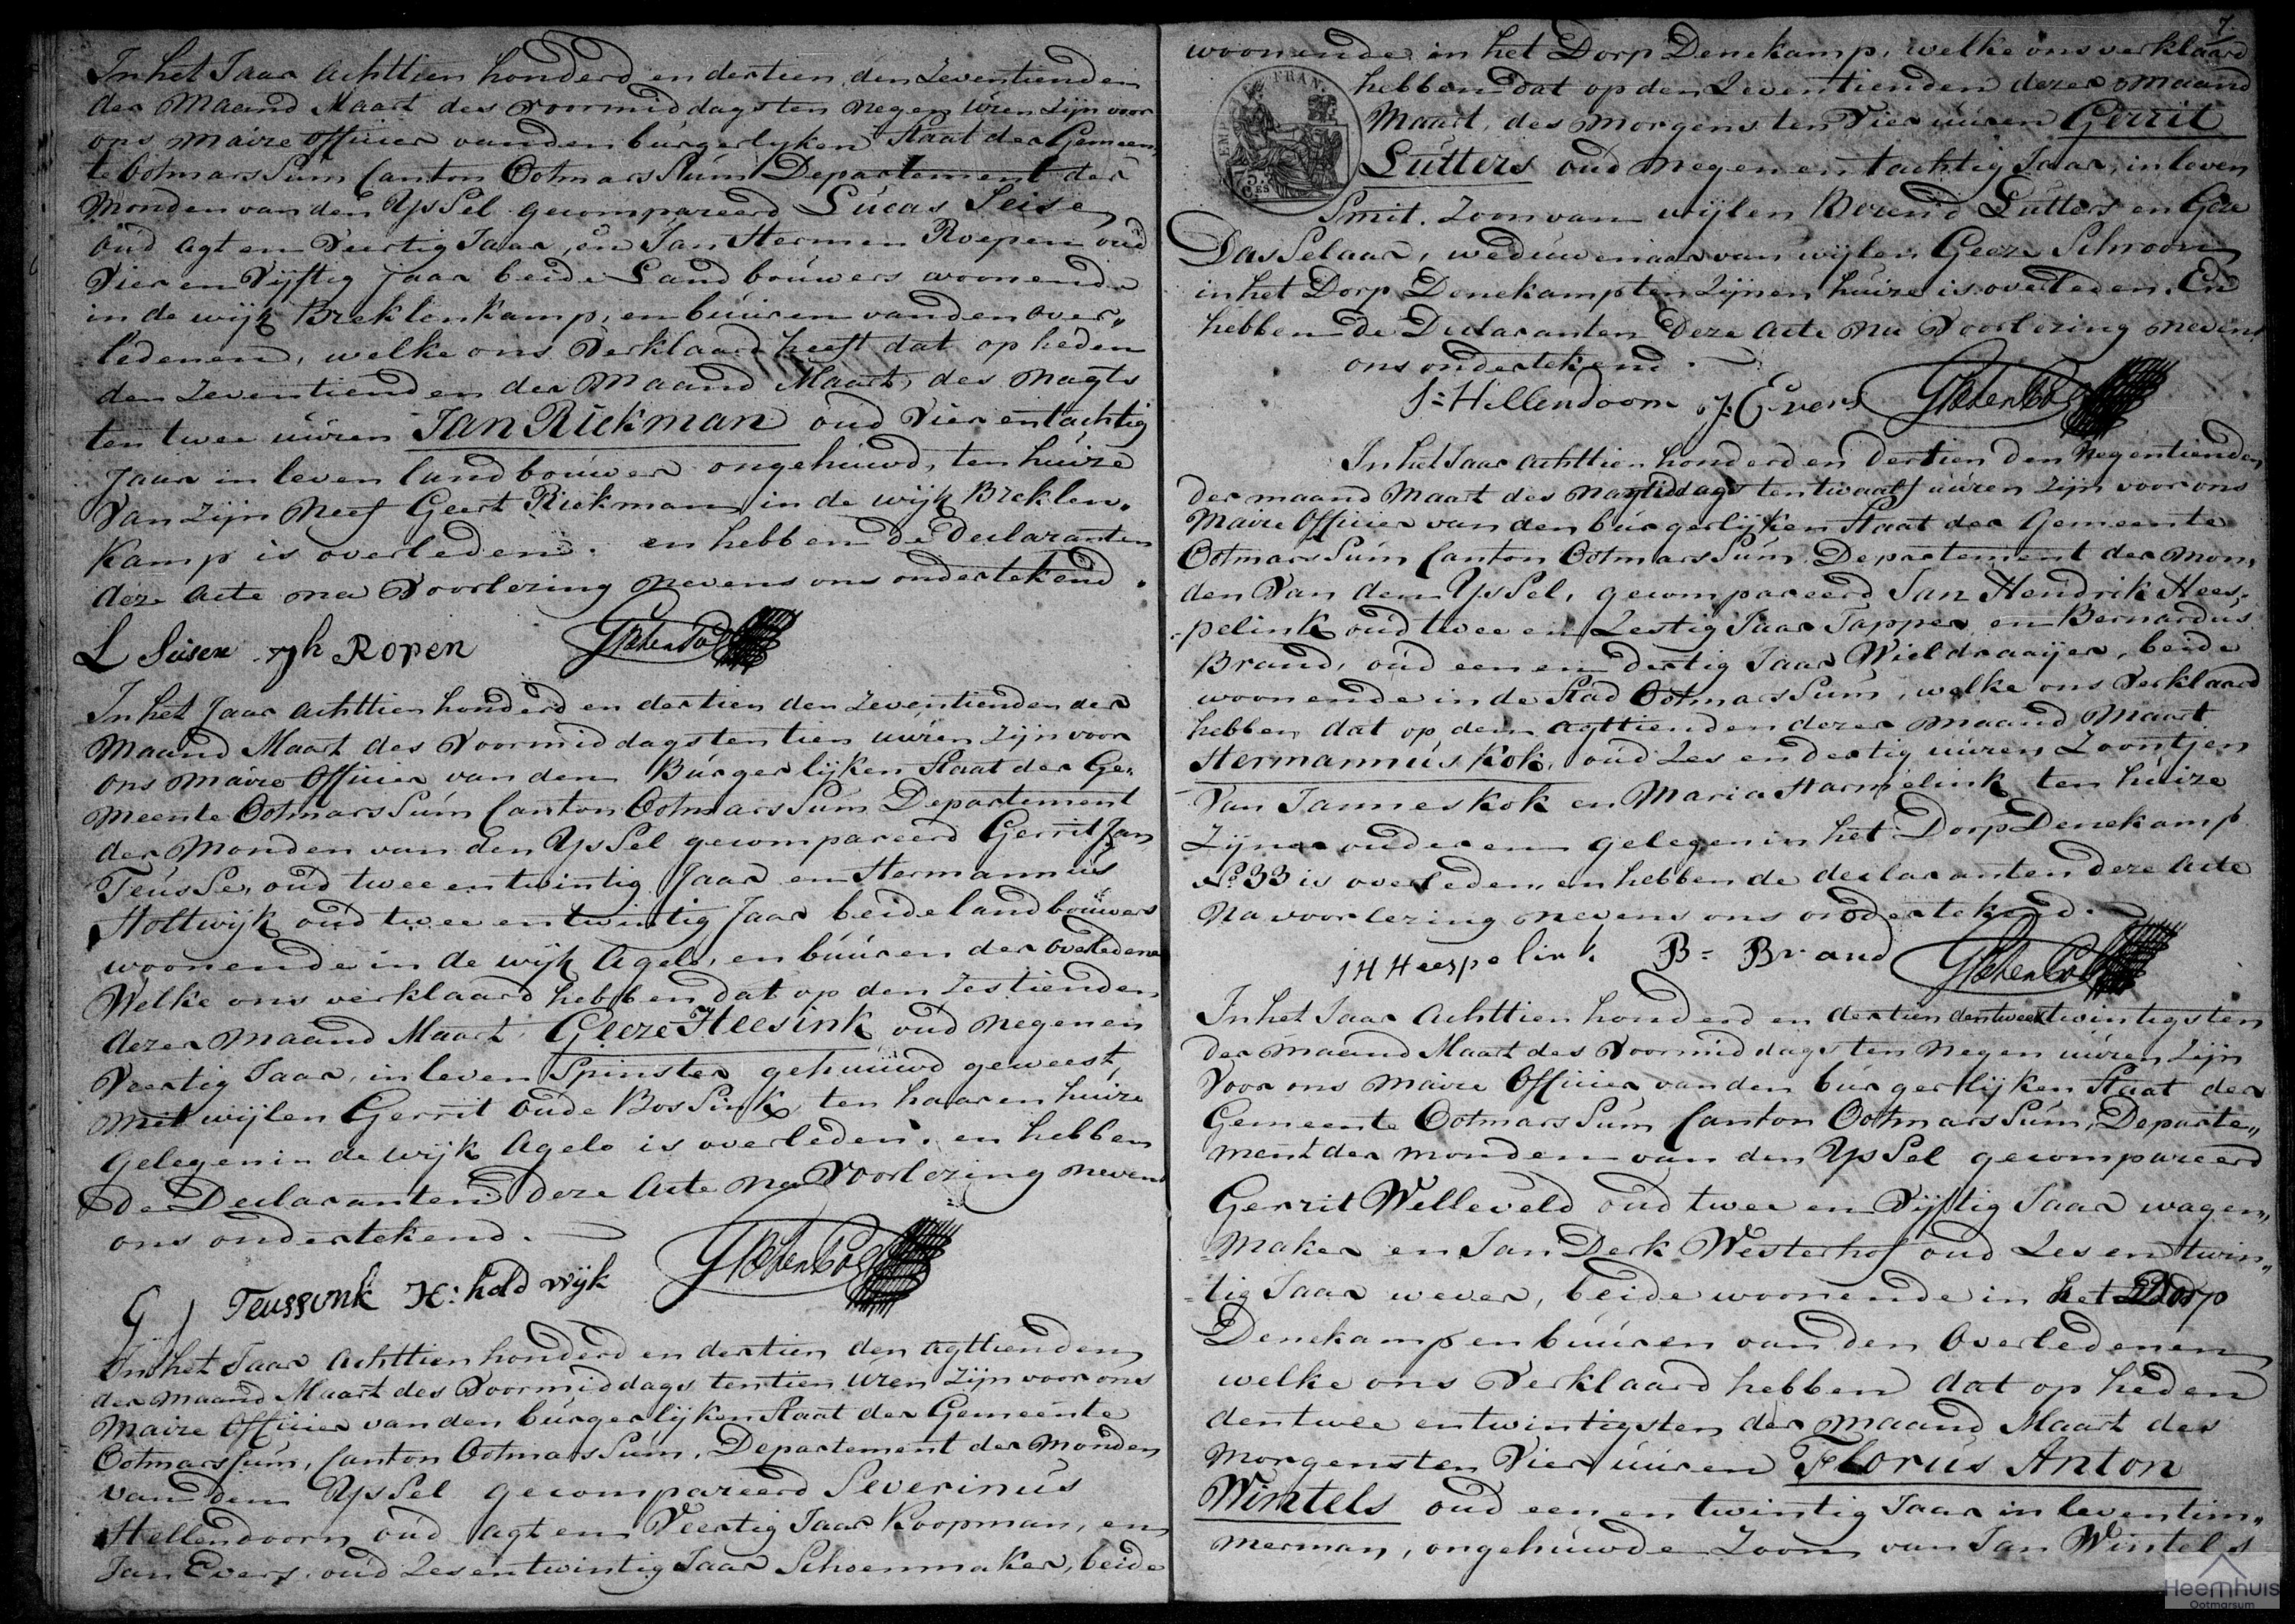 In het Jaar Achttien honderd en dertien, den Zeventienden
der Maand Maart des Voormiddags ten negen uren zijn voor
ons Maire Officier van den burgerlyken Staat der Gemeen„
te OotmarsSum Canton OotmarsSum Departement der
Monden van den YsSel gecompareerd Lucas Seise
oud agt en Veertig Jaar, en Jan Hermen Roepen oud
Vier en Vijftig Jaar beide Landbouwers woonende
in de wijk Breklenkamp, en buuren van den over„
ledenen, welke ons Verklaard heeft dat op heden
den Zeventienden der Maand Maart, des nagts
ten twee uuren Jan Riekman oud Vier en tachtig
Jaar in leven landbouwer ongehuwd, ten huize
Van zijn Neef Geert Riekman in de wijk Breklen„
kamp is overleden. en hebben de Declaranten
deze Acte na Voorlezing nevens ons ondertekend.
L Seisen jh Ropen
In het Jaar Achttien honderd en dertien den Zeventienden der
Maand Maart des Voormiddags ten tien uuren zijn voor
ons Maire Officier van den Burgerlijken Staat der Ge„
meente OotmarsSum Canton OotmarsSum Departement
der Monden van den YsSel gecompareerd Gerrit Jan
TeusSe, oud twee en twintig Jaar en Hermannus
Holtwijk oud twee en twintig Jaar beide landbouwers
woonende in de wijk Agelo, en buuren der overledene
Welke ons verklaard hebben dat op den Zestienden
dezer Maand Maart Geeze Heesink oud negen en
Veertig Jaar, in leven Spinster gehuuwd geweest,
met wijlen Gerrit oude BosSink, ten haaren huize
gelegen in de wijk Agelo is overleden. en hebben
de Declaranten deze Acte na Voorlezing nevens
ons ondertekend.
G J Teussink H: hold wijk
In het Jaar Achttien honderd en dertien den agttienden
der Maand Maart des Voormiddags ten tien uren zijn voor ons
Maire Officier van den burgerlijken Staat der Gemeente
OotmarsSum, Canton OotmarsSum, Departement der Monden
van den YsSel gecompareerd Severinus
Hellendoorn oud agt en Veertig Jaar Koopman, en
Jan Evers oud Zes en twintig Jaar Schoenmaker, beide
7
woonende in het Dorp Denekamp, welke ons verklaard
EMP FRAN.
hebben dat op den Zeventienden dezer Maand
Maart, des morgens ten Vier uuren Gerrit
Lutters oud negen en tachtig Jaar, in leven
Smit. Zoon van wijlen Berend Lutters en Geze
DasSelaar, weduwenaar van wijlen Geeze Schroon
in het Dorp Denekamp ten zijnen huize is overleden. En
hebben de Declaranten deze Acte na Voorlezing nevens
ons ondertekend.
S: Hellendoorn J: Evers
In het Jaar Achttien honderd en dertien den Negentienden
der Maand Maart des namiddags ten twaalf uuren zijn voor ons
Maire Officier van den burgerlijken Staat der Gemeente
OotmarsSum Canton OotmarsSum Departement der Mon„
den Van den YsSel, gecompareerd Jan Hendrik Hees„
pelink oud twee en Zestig Jaar Tapper en Bernardus
Brand, oud een en dertig Jaar Wieldraaijer, beide
woonende in de Stad OotmarsSum, welke ons Verklaard
hebben dat op den agttienden dezer maand Maart
Hermannus Kok, oud Zes en dertig uuren, Zoontjen
Van Jannes Kok en Maria Harmelink ten huize
Zijner ouderen gelegen in het Dorp Denekamp
No 33 is overleden en hebben de declaranten deze Acte
Na voorlezing nevens ons ondertekend.
JH Heespelink B= Brand
In het Jaar Achttien honderd en dertien den twee twintigsten
der Maand Maart des Voormiddags ten Negen uuren zijn
Voor ons Maire Officier van den burgerlijken Staat der
Gemeente OotmarsSum Canton OotmarsSum, Departe„
ment der monden van den YsSel gecompareerd
Gerrit Welleveld oud twee en Vijftig Jaar wagen„
maker en Jan Derk Westerhof oud Zes en twin„
tig Jaar wever, beide woonende in het Dorp
Denekamp en buuren van den Overledenen
welke ons Verklaard hebben dat op heden
den twee en twintigsten der Maand Maart des
Morgens ten Vier uuren Florus Anton
Wintels oud een en twintig Jaar in leven tim„
merman, ongehuwde Zoon van Jan Wintels
Heemhuis
Ootmarsum